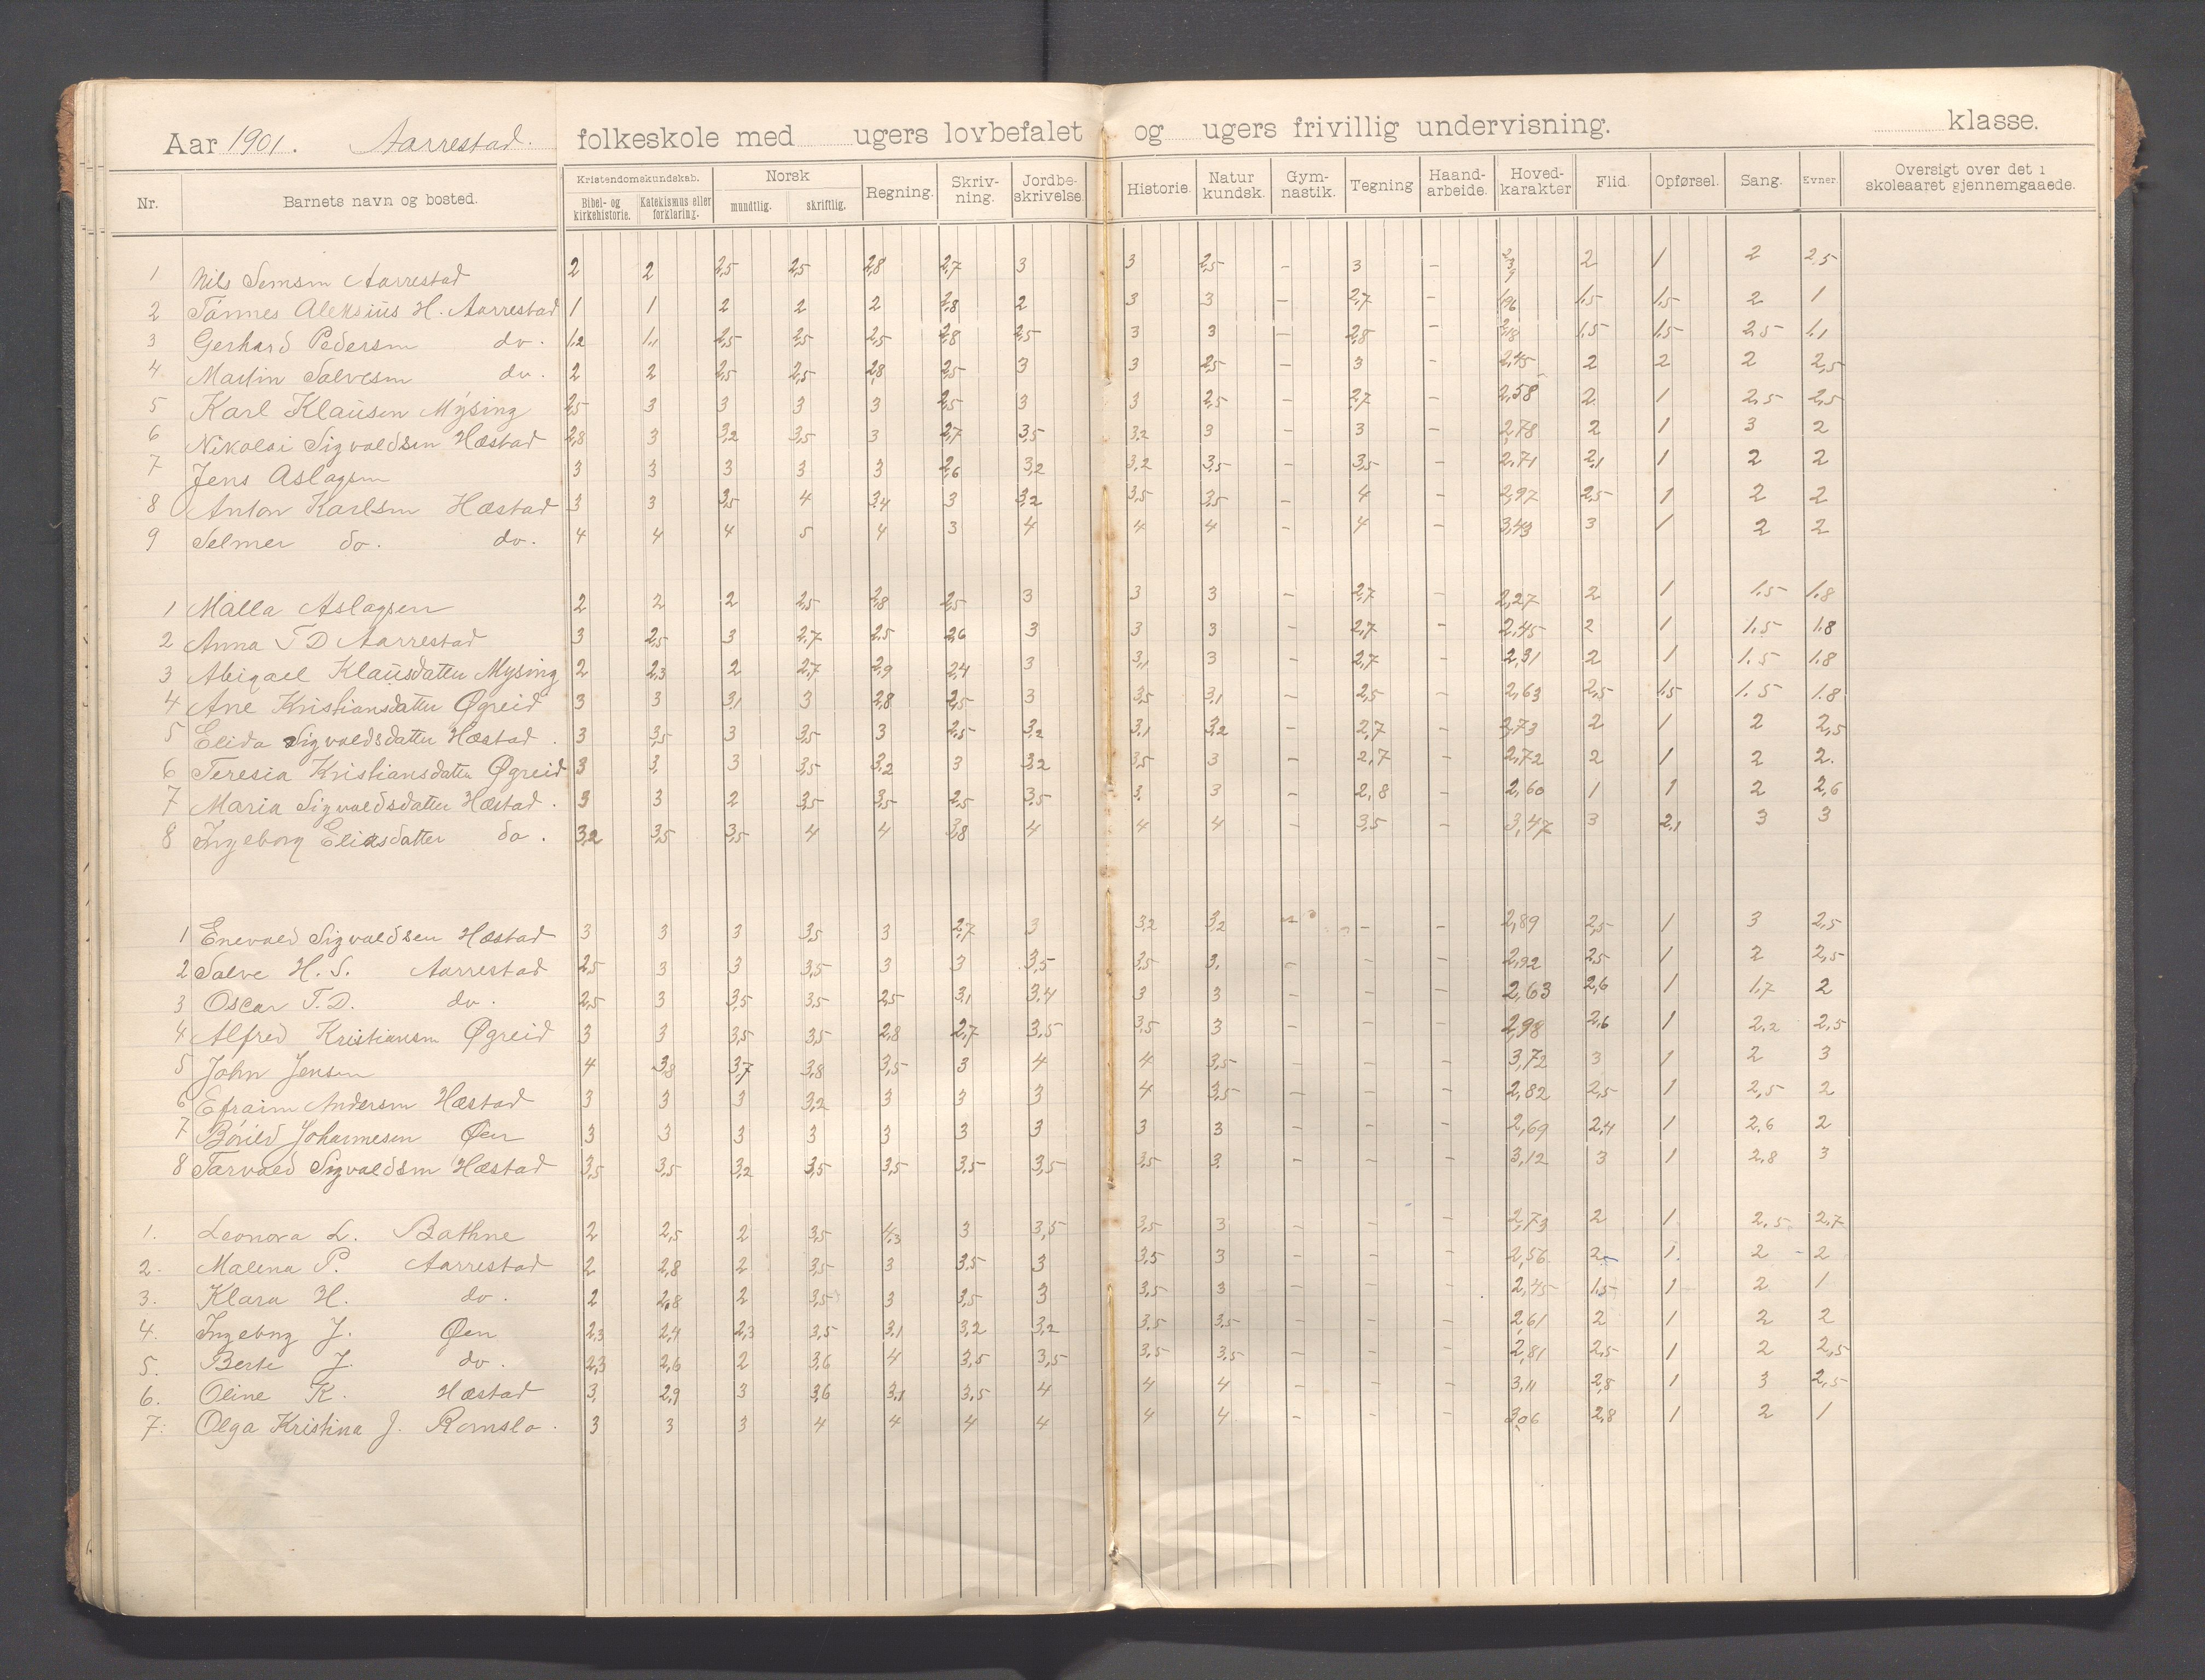 Aar 1901. Aarrestad. folkeskole med ugers lovbefalet og ugers frivillig undervisning. klasse.
Nr. Barnets navn og bosted. Kristendomskundskab. Bibel- og kirkehistorie. Katekismus eller forklaring. Norsk mundtlig. skriftlig. Regning. Skriv-ning. Jordbe-skrivelse. Historie. Natur kundsk. Gym-nastik. Tegning Haand-arbeide. Hoved-karakter Flid. Opførsel. Sang. Evner. Oversigt over det i skoleaaret gjennemgaaede.
1 Nils Aarrestad 2 2 2,5 2,5 2,8 2,7 3 3 2,5 - 3 - 2 1 2 2,5
2 Tønnes Aleksius H. Aarrestad 1 1 2 2 2 2,8 2 3 3 - 2,7 - 1,96 1,5 1,5 2 1
3 Gerhard Pedersen do. 1,2 1,1 2,5 2,5 2,5 2,8 2,5 3 3 - 2,8 - 2,18 1,5 1,5 2,5 1,1
4. Martin Salvesen do. 2 2 2,5 2,5 2,8 2,5 3 3 2,5 - 3 - 2,45 2 2 2 2,5
5 Karl Klausen Mysing 2,5 3 3 3 3 2,5 3 3 2,5 - 2,7 - 2,58 2 1 2,5 2,5
6 Nikolai Sigvaldsen Hæstad 2,8 3 3,2 3,5 3 2,7 3,5 3,2 3 - 3 - 2,78 2 1 3 2
7 Jens Aslagsen 3 3 3 3 3 2,6 3,2 3,2 3,5 - 3,5 - 2,71 2,1 1 2 2
8 Anton Karlsen Hæstad 3 3 3,5 4 3,4 3 3,2 3,5 3,5 - 4 - 2,97 2,5 1 2 2
9 Selmer do. do. 4 4 4 5 4 3 4 4 4 - 4 - 3,43 3 1 2 2
1 Malla Aslagsen 2 2 2 2,5 2,8 2,5 3 3 3 - 2,7 - 2,27 2 1 1,5 1,8
2 Anna T D Aarrestad 3 2,5 3 2,7 2,5 2,6 3 3 3 - 2,7 - 2,45 2 1 1,5 1,8
3 Abigael Klausdatter Mysing 2 2,3 2 2,7 2,9 2,4 3 3,1 3 - 2,7 - 2,31 2 1 1,5 1,8
4 Ane Kristiansdatter Øgreid 3 3 3,1 3 2,8 2,5 3 3,5 3,1 - 2,5 - 2,63 2,5 1,5 1,5 1,8
5 Elida Sigvaldsdatter Hæstad. 3 3,5 3 3,5 3 2,5 3,2 3,1 3,2 - 2,7 - 2,73 2 1 2 2,5
6 Teresia Kristiansdatter Øgreid 3 3 3 3,5 3,2 3 3,2 3,5 3 - 2,7 - 2,72 2 1 2 2.
7 Maria Sigvaldsdatter Hæstad. 3 3 2 3,5 3,5 2,5 3,5 3. 3 - 2,8 - 2,60 1 1 2 2,6
8 Ingeborg Eliasdatter do. 3,2 3,5 3,5 4 4 3,8 4 4 4 - 3,5 - 3,47 3 2,1 3 3
1 Enevald Sigvaldsen Hæstad 3 3 3 3,5 3 2,7 3 3,2 3,2 - - 2,89 2,5 1 3 2,5
2 Salve H. S. Aarrestad 2,5 3 3 3,5 3 3 3,5 3,5 3. - - - 2,92 2,5 1 2 2,5
3 Oscar T. D. do. 2,5 3 3,5 3,5 2,5 3,1 3,4 3 3 - - - 2,63 2,6 1 1,7 2
4 Alfred Kristiansen Øgreid 3 3 3,5 3,5 2,8 2,7 3,5 3,5 3 - - - 2,98 2,6 1 2,2 2,5
5 John Jensen 4 3,8 3,7 3,8 3,5 3 4 4 3,5 - - - 3,72 3 1 2 3
6 Efraim Andersen Hæstad 3 3 3 3,2 3 3 3 4 3,5 - - - 2,82 2,5 1 2,5 2
7 Johannesen Øen 3 3 3 3 3 3 3 3 3 - - - 2,69 2,4 1 2,6 2
8 Tarvald Sigvaldsen Hæstad 3,5 3,5 3,2 3,5 3,5 3,5 3,5 3,5 3. - - - 3,12 3 1 2,8 3
1. Leonora L. Bathne 2 2,5 2 3,5 4,3 3 3,5 3,5 3 - - - 2,73 2 1 2,5 2,7
2. Malena P. Aarrestad 2 2,8 2 3,5 3 3,5 3 3,5 3 - - - 2,56 2 1. 2 - 2
3. Klara H. do. 2 2,8 2 3,5 3 3,5 3 3,5 3 - - - 2,45 1,5 1 2 1
4. Ingeborg J. Øen 2,3 2,4 2,3 3,5 3,1 3,2 3,2 3,5 3,5 - - - 2,61 2 1 2 2
5. Berte J. do. 2,3 2,6 2 3,6 4 3,5 3,5 3,5 3,5 - - - 2,81 2,5 1 2 2,5
6. Oline K. Hæstad 3. 2,9 3 3,6 3,1 3,5 4 4 4 - - - 3,11 2,8 1 3 2,5
7. Olga Kristina J. Romslo. 3 3 3 4 4 4 4 4 4 - - - 3,06 2,8 1 2 1